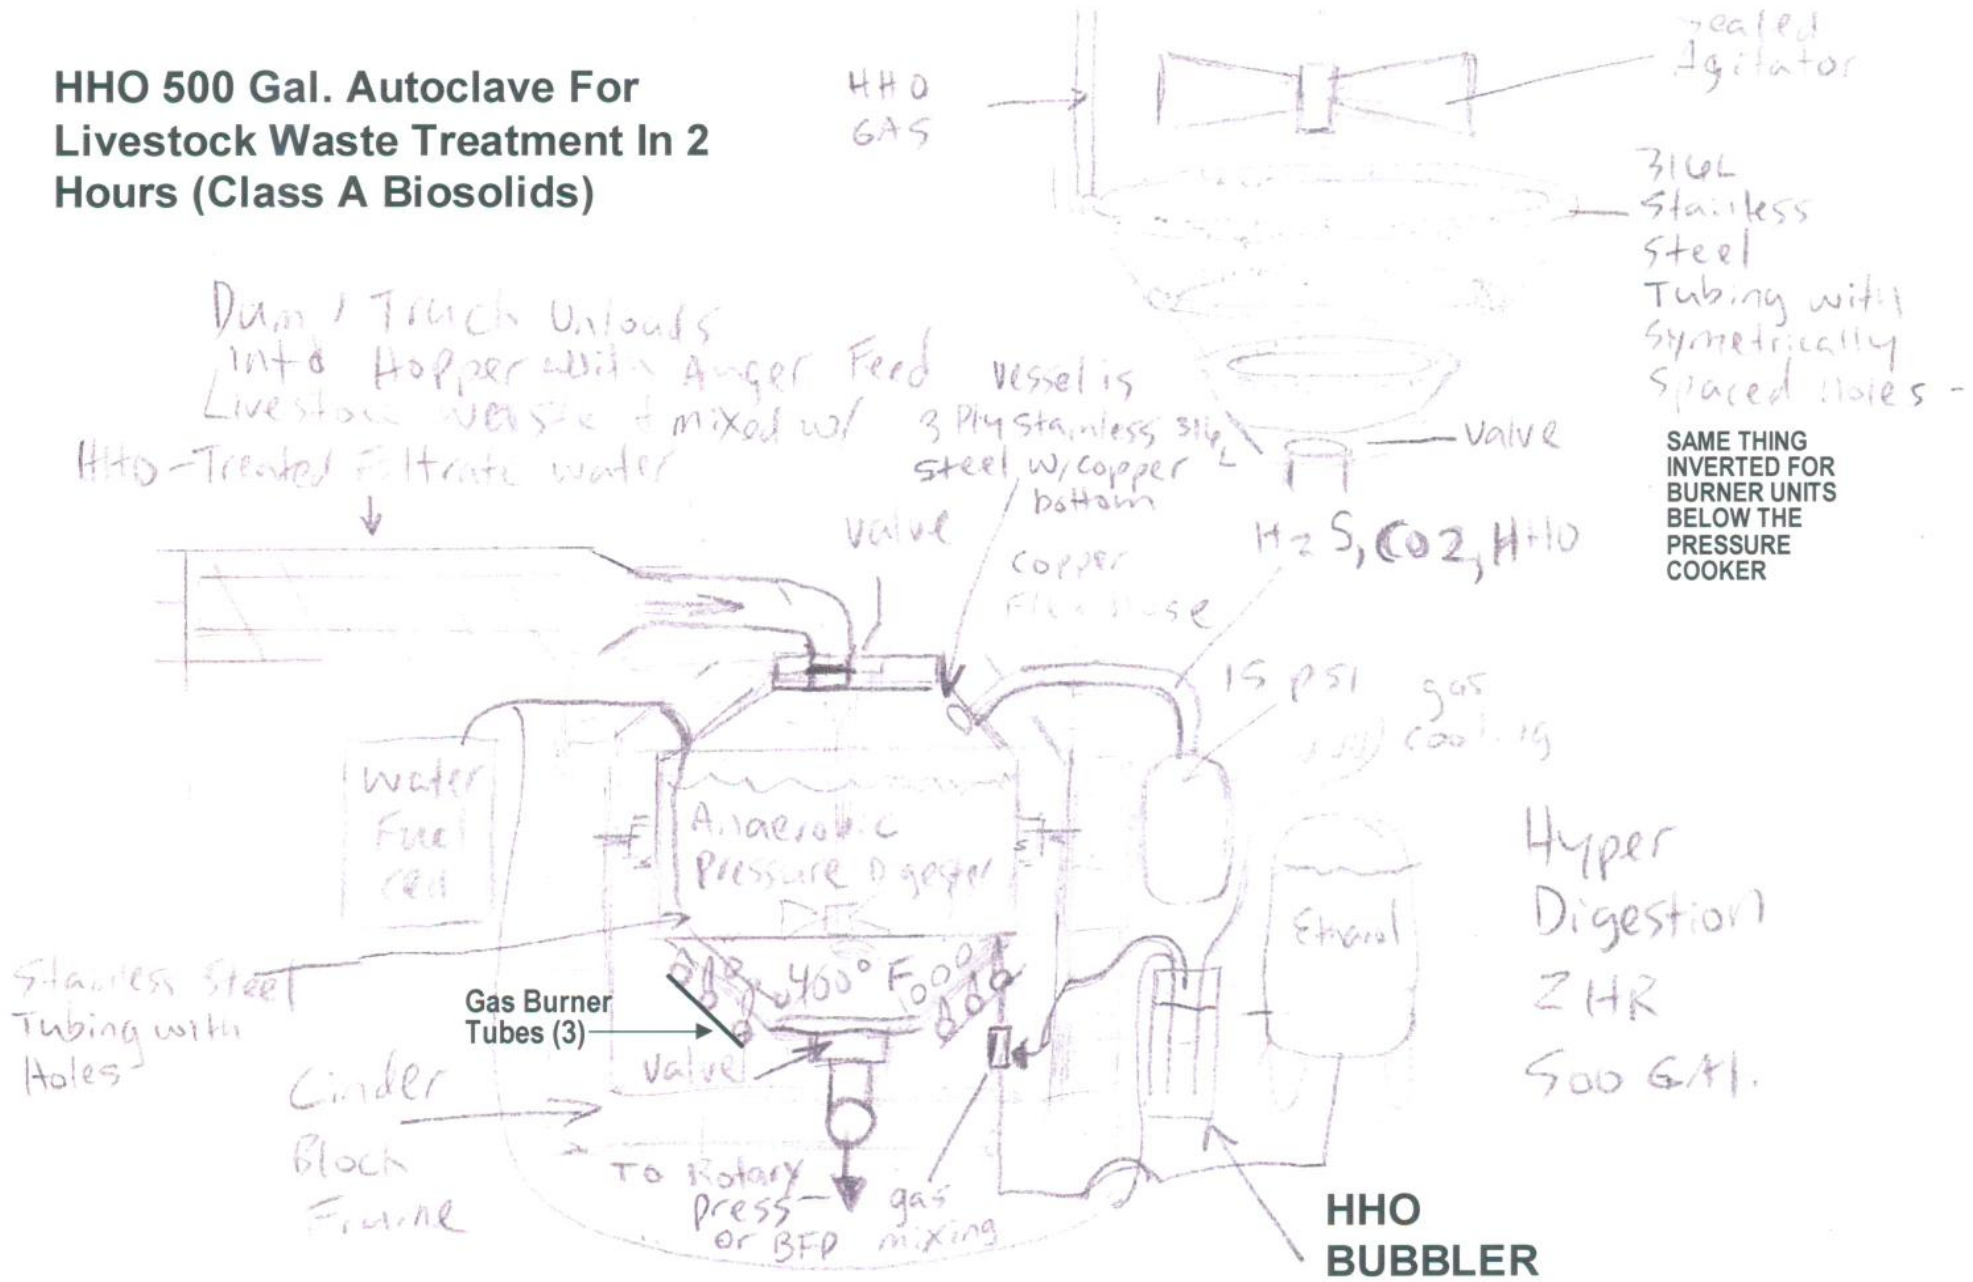 HHO 500 Gal. Autoclave For
Livestock Waste Treatment In 2
Hours (Class A Biosolids)
HHO
GAS
Sealed
Agitator
316L
Stainless
Steel
Tubing with
Symetrically
Spaced Holes -
SAME THING
INVERTED FOR
BURNER UNITS
BELOW THE
PRESSURE
COOKER
Valve
Truck Unloads
into Hopper with Auger Feed
Livestock Waste + mixed w/
HHO-Treated Filtrate water
Vessel is
3 Ply Stainless 316 L
Steel w/copper
bottom
valve
H2S, CO2, HHO
Copper
Flex Hose
15 psi
gas
cooling
Water
Fuel
Cell
Anaerobic
Pressure Digester
Ethanol
Hyper
Digestion
2 HR
500 GAl.
400° F
Stainless Steel
Tubing with
Holes
Gas Burner
Tubes (3)
Valve
Cinder
Block
Frame
To Rotary
press
or BFP
gas
mixing
HHO
BUBBLER